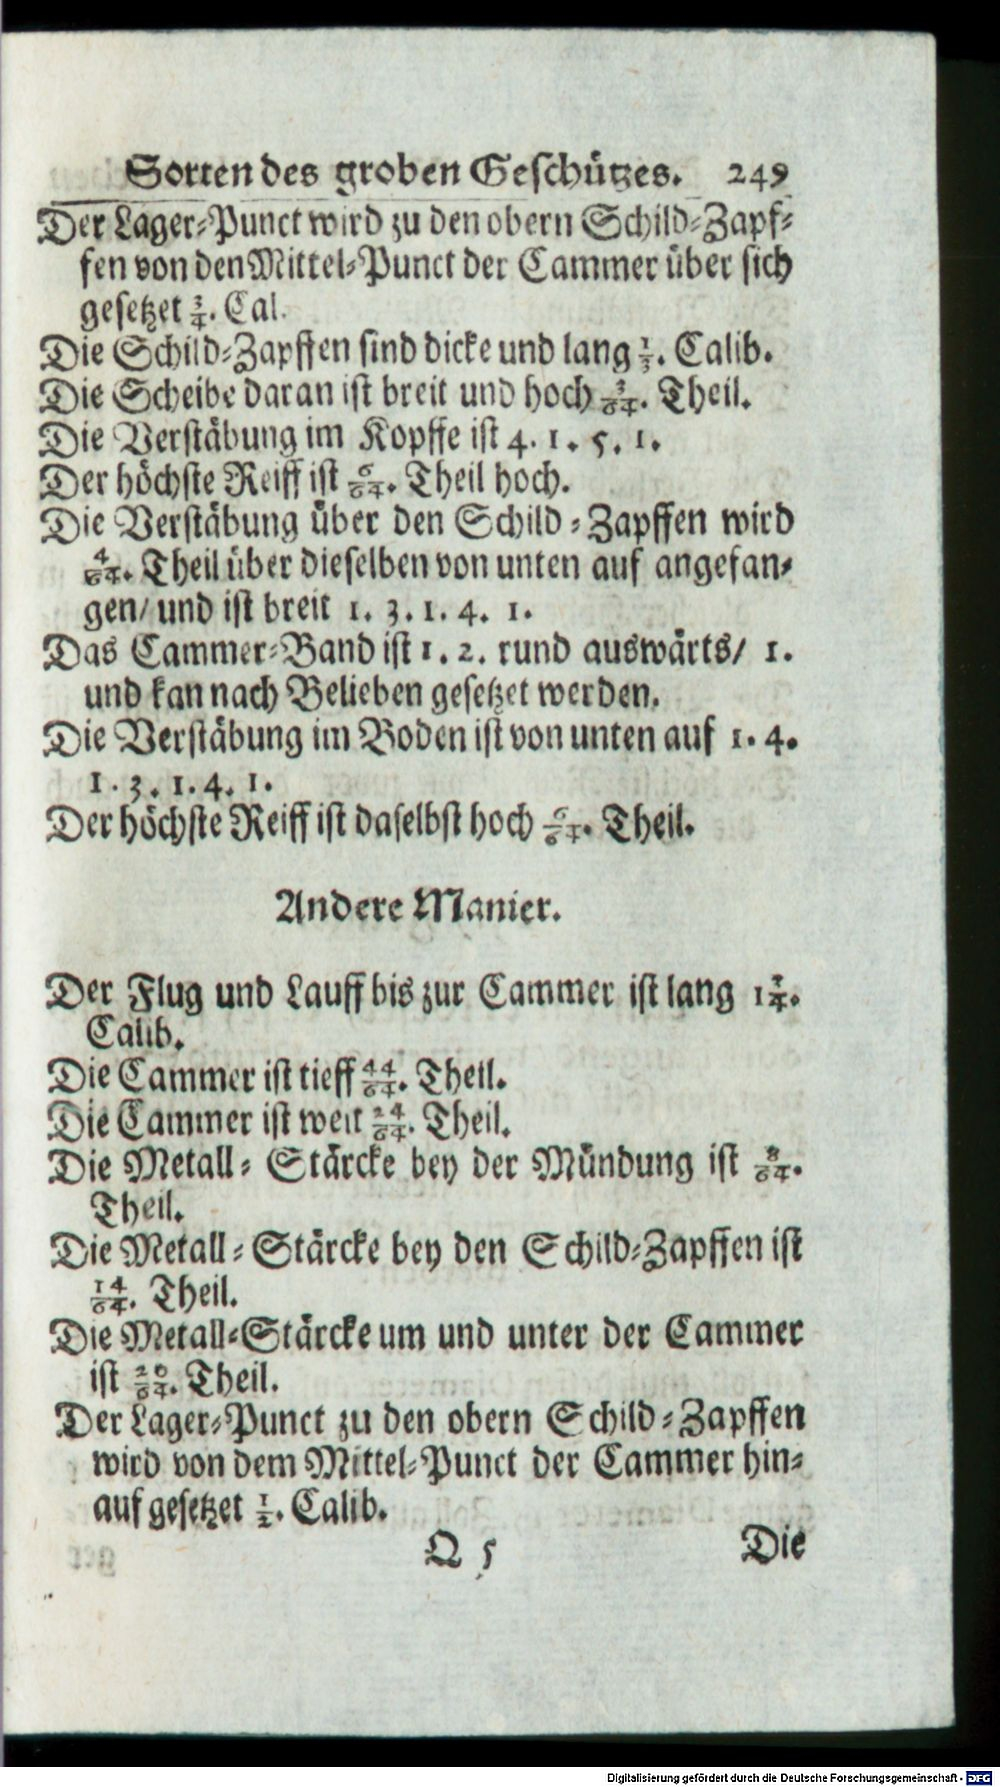 Sorten des groben Geschützes. 249
Der Lager-Punct wird zu den obern Schild-Zapf-
fen von den Mittel-Punct der Cammer über sich
gesetzet 3/4. Cal.
Die Schild-Zapffen sind dicke und lang 1/3. Calib.
Die Scheibe daran ist breit und hoch 3/64. Theil.
Die Verstäbung im Kopffe ist 4. 1. 5. 1.
Der höchste Reiff ist 6/64. Theil hoch.
Die Verstäbung über den Schild-Zapffen wird
4/64. Theil über dieselben von unten auf angefan-
gen/ und ist breit 1. 3. 1. 4. 1.
Das Cammer-Band ist 1. 2. rund auswärts/ 1.
und kan nach Belieben gesetzet werden.
Die Verstäbung im Boden ist von unten auf 1. 4.
1. 3. 1. 4. 1.
Der höchste Reiff ist daselbst hoch 6/64. Theil.
Andere Manier.
Der Flug und Lauff bis zur Cammer ist lang 1 3/4.
Calib.
Die Cammer ist tieff 44/64. Theil.
Die Cammer ist weit 24/64. Theil.
Die Metall-Stärcke bey der Mündung ist 8/64.
Theil.
Die Metall-Stärcke bey den Schild-Zapffen ist
14/64. Theil.
Die Metall-Stärcke um und unter der Cammer
ist 20/64. Theil.
Der Lager-Punct zu den obern Schild-Zapffen
wird von dem Mittel-Punct der Cammer hin-
auf gesetzet 1/2. Calib.
Q 5 Die
Digitalisierung gefördert durch die Deutsche Forschungsgemeinschaft - DFG